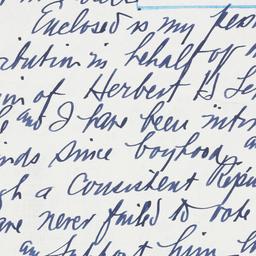 Enclosed is my pers
ribution in behalf of m
of Herbert H Le
and I have been inti
nds since boyhood
gh a Consistent Repu
are never failed to vote
support him